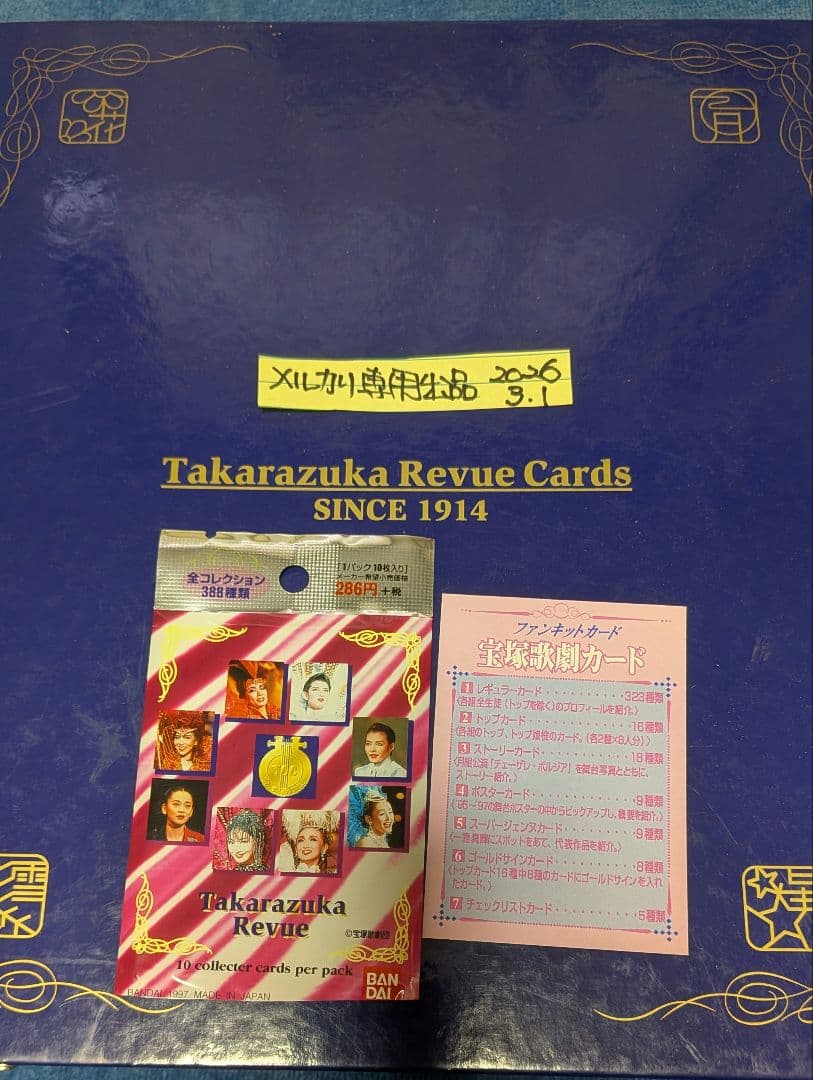 花
月
メルカリ専用出品 2026
3.1
Takarazuka Revue Cards
SINCE 1914
全コレクション
388種類
[1パック10枚入り]
メーカー希望小売価格
286円+税
Takarazuka
Revue
©宝塚歌劇団
10 collecter cards per pack
BANDAI 1997 MADE IN JAPAN
BAN
DAI
ファンキットカード
宝塚歌劇カード
1 レギュラーカード・・・・・・・・・・・323種類
〈各組全生徒(トップを除く)のプロフィールを紹介。〉
2 トップカード・・・・・・・・・・・16種類
〈各組のトップ、トップ娘役のカード。(各2種×8人分)〉
3 ストーリーカード・・・・・・・・・・18種類
〈月組公演「チェーザレ・ボルジア」を舞台写真とともに、
ストーリー紹介。〉
4 ポスターカード・・・・・・・・・・9種類
〈'95〜'97の舞台ポスターの中からピックアップし、概要を紹介。〉
5 スーパージェンヌカード・・・・・・・9種類
〈一路真輝にスポットをあて、代表作品を紹介。〉
6 ゴールドサインカード・・・・・・・・8種類
〈トップカード16種中8種のカードにゴールドサインを入れ
たカード。〉
7 チェックリストカード・・・・・・・・5種類
雪
星